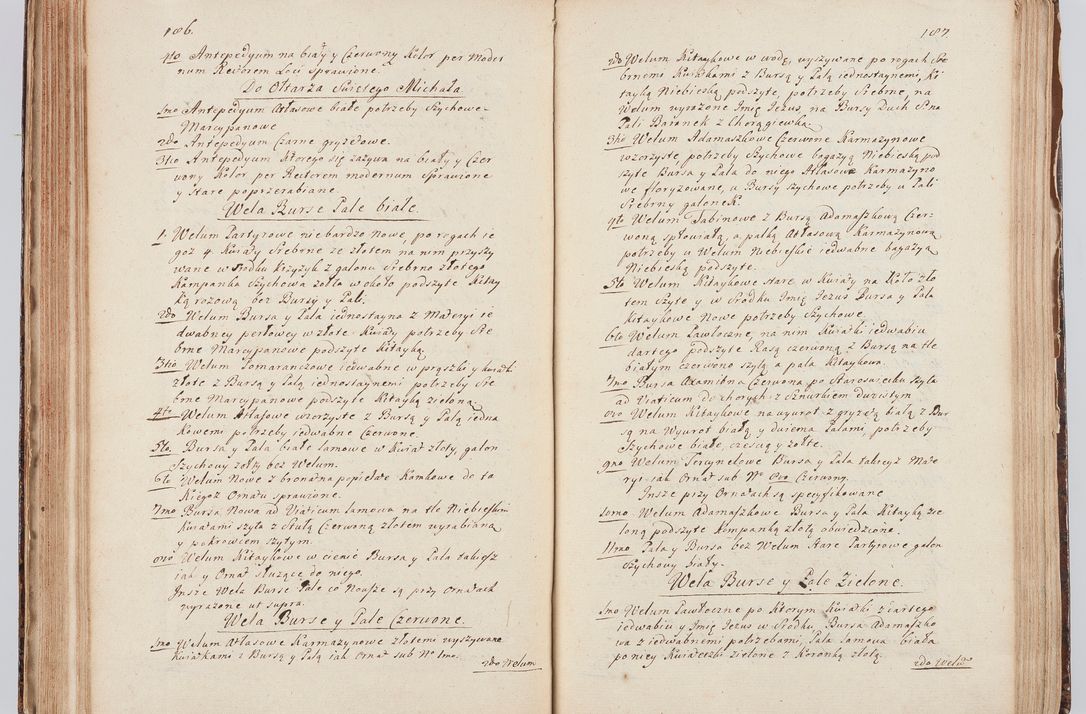 186.
4to Antepedyum na biały y Czerwony Kolor per Moder
num Rectorem Loci sprawione.
Do Ołtarza Swiętego Michała
Imo Antepedyum Atłasowe białe potrzeby Szychowe
Marcypanowe
2do Antepedyum Czarne gryzetowe.
3tio Antepedyum Ktorego się zazywa na biały y Czer
wony Kolor per Rectorem modernum sprawione
y stare poprzerabiane.
Wela Burse Pale białe.
1. Welum Partyrowe niebardzo Nowe, po rogach ie
goż 4 Kwiaty srebrne ze złotem na nim przyszy
wane w srodku krzyżyk z galonu srebrno złotego
Kampanka szychowa zołta wokoło podszyte Kitay
ką rozową bez Bursy y Pali.
2do Welum Bursa y Pala iednostayna z Materyi ie
dwabney perłowey w złote Kwiaty potrzeby sre
brne Marcypanowe podszyte Kitayką
3tio Welum Pomaranczowe iedwabne w prążsko y kwiatki
złote z Bursą y Palą iednostaynemi potrzeby sre
brne Marcypanowe podszyte Kitayką zieloną
4to Welum Atłasowe wzorzyste z Bursą y Palą iedna
kowemi potrzeby iedwabne Czerwone.
5to. Bursa y Pala białe lamowe w Kwiat złoty, galon
Szychowy zołty bez Welum.
6to Welum Nowe z bronatna popielate Komkowe do ta
kiegoż Ornatu sprawione.
7mo Bursa Nowa ad Viaticum lamowa na tle Niebieskim
Kwiatami szyta z stułą Czerwoną złotem wyrabianą
y pokrowcem szytym.
8vo Welum Kitaykowe w cienie Bursa y Pala takiesz
iak y Ornat słuzące do niego.
Insze Wela Burse Pale co Nowsze są przy Ornatach
wyrażone ut supra.
Wela Burse y Pale Czerwone.
Imo Welum Atłasowe Karmazynowe złotemi wyszywane
Kwiatkami z Bursą y Palą iak Ornat sub No Imo.
2do Welum
187.
2do Welum Kitaykowe w wodę, wyszywane po rogach sre
brnemi Kwiatkami z Bursą y Palą iednostaynemi, Ki
tayką Niebieską podszyte, potrzeby srebrne, na
Welum wyrażone Imię Jezus, na Bursy Duch S. na
Pali Baranek z Chorągiewką.
3tio Welum Adamaszkowe Czerwone Karmazynowe
wzorzyste potrzeby Szychowe bagazyą Niebieską pod
szyte Bursa y Pala do niego Atłasowe Karmazyno
we floryzowane, u Bursy szychowe potrzeby u Pali
srebrny galonek.
4to Welum Tabinowe z Bursą Adamaszkową Czer-
woną spłowiałą, a palką Atłasową Karmazynową
potrzeby u Welum Niebieskie iedwabne bagazyą
Niebieską podszyte.
5to Welum Kitaykowe stare w Kwiaty na Koło zło
tem Szyte y w srodku Imię Jezus Bursa y Pala
kitaykowe Nowe potrzeby Szychowe.
6to Welum Pawłoczne, na nim Kwiatki iedwabiu
dartego podszyte Rasą czerwoną z Bursą na tle
białym czerwono szytą a pala Kitaykowa.
7mo Bursa Axamitna Czerwona po Staroswiecku szyta
ad Viaticum do chorych z sznurkiem duzistym
8vo Welum Kitaykowe na wywrot z gryzetą białą z Bur
są na Wywrot białą y dwiema Palami, potrzeby
Szychowe białe, czescią y zołte.
9no Welum Tercynelowe Bursa y Pala takieyż Mate
ryi iak Ornat sub No 8vo Czerwony.
Insze przy Ornatach są specyfikowane
10mo Welum Adamaszkowe Bursa y Pala Kitayką zie
loną podszyte Kompanką złotą obwiedzione.
11mo Pala y Bursa bez Welum stare Partyrowe galon
szychowy biały.
Wela Burse y Pale Zielone.
Imo Welum Pawłoczne po Ktorym Kwiatki z dartego
iedwabiu y Imię Jezus w srodku Bursa Adamaszko
wa z iedwabnemi potrzebami, Pala lamowa biała
po niey Kwiateczki zielone z Koronką złotą.
2do Welũ